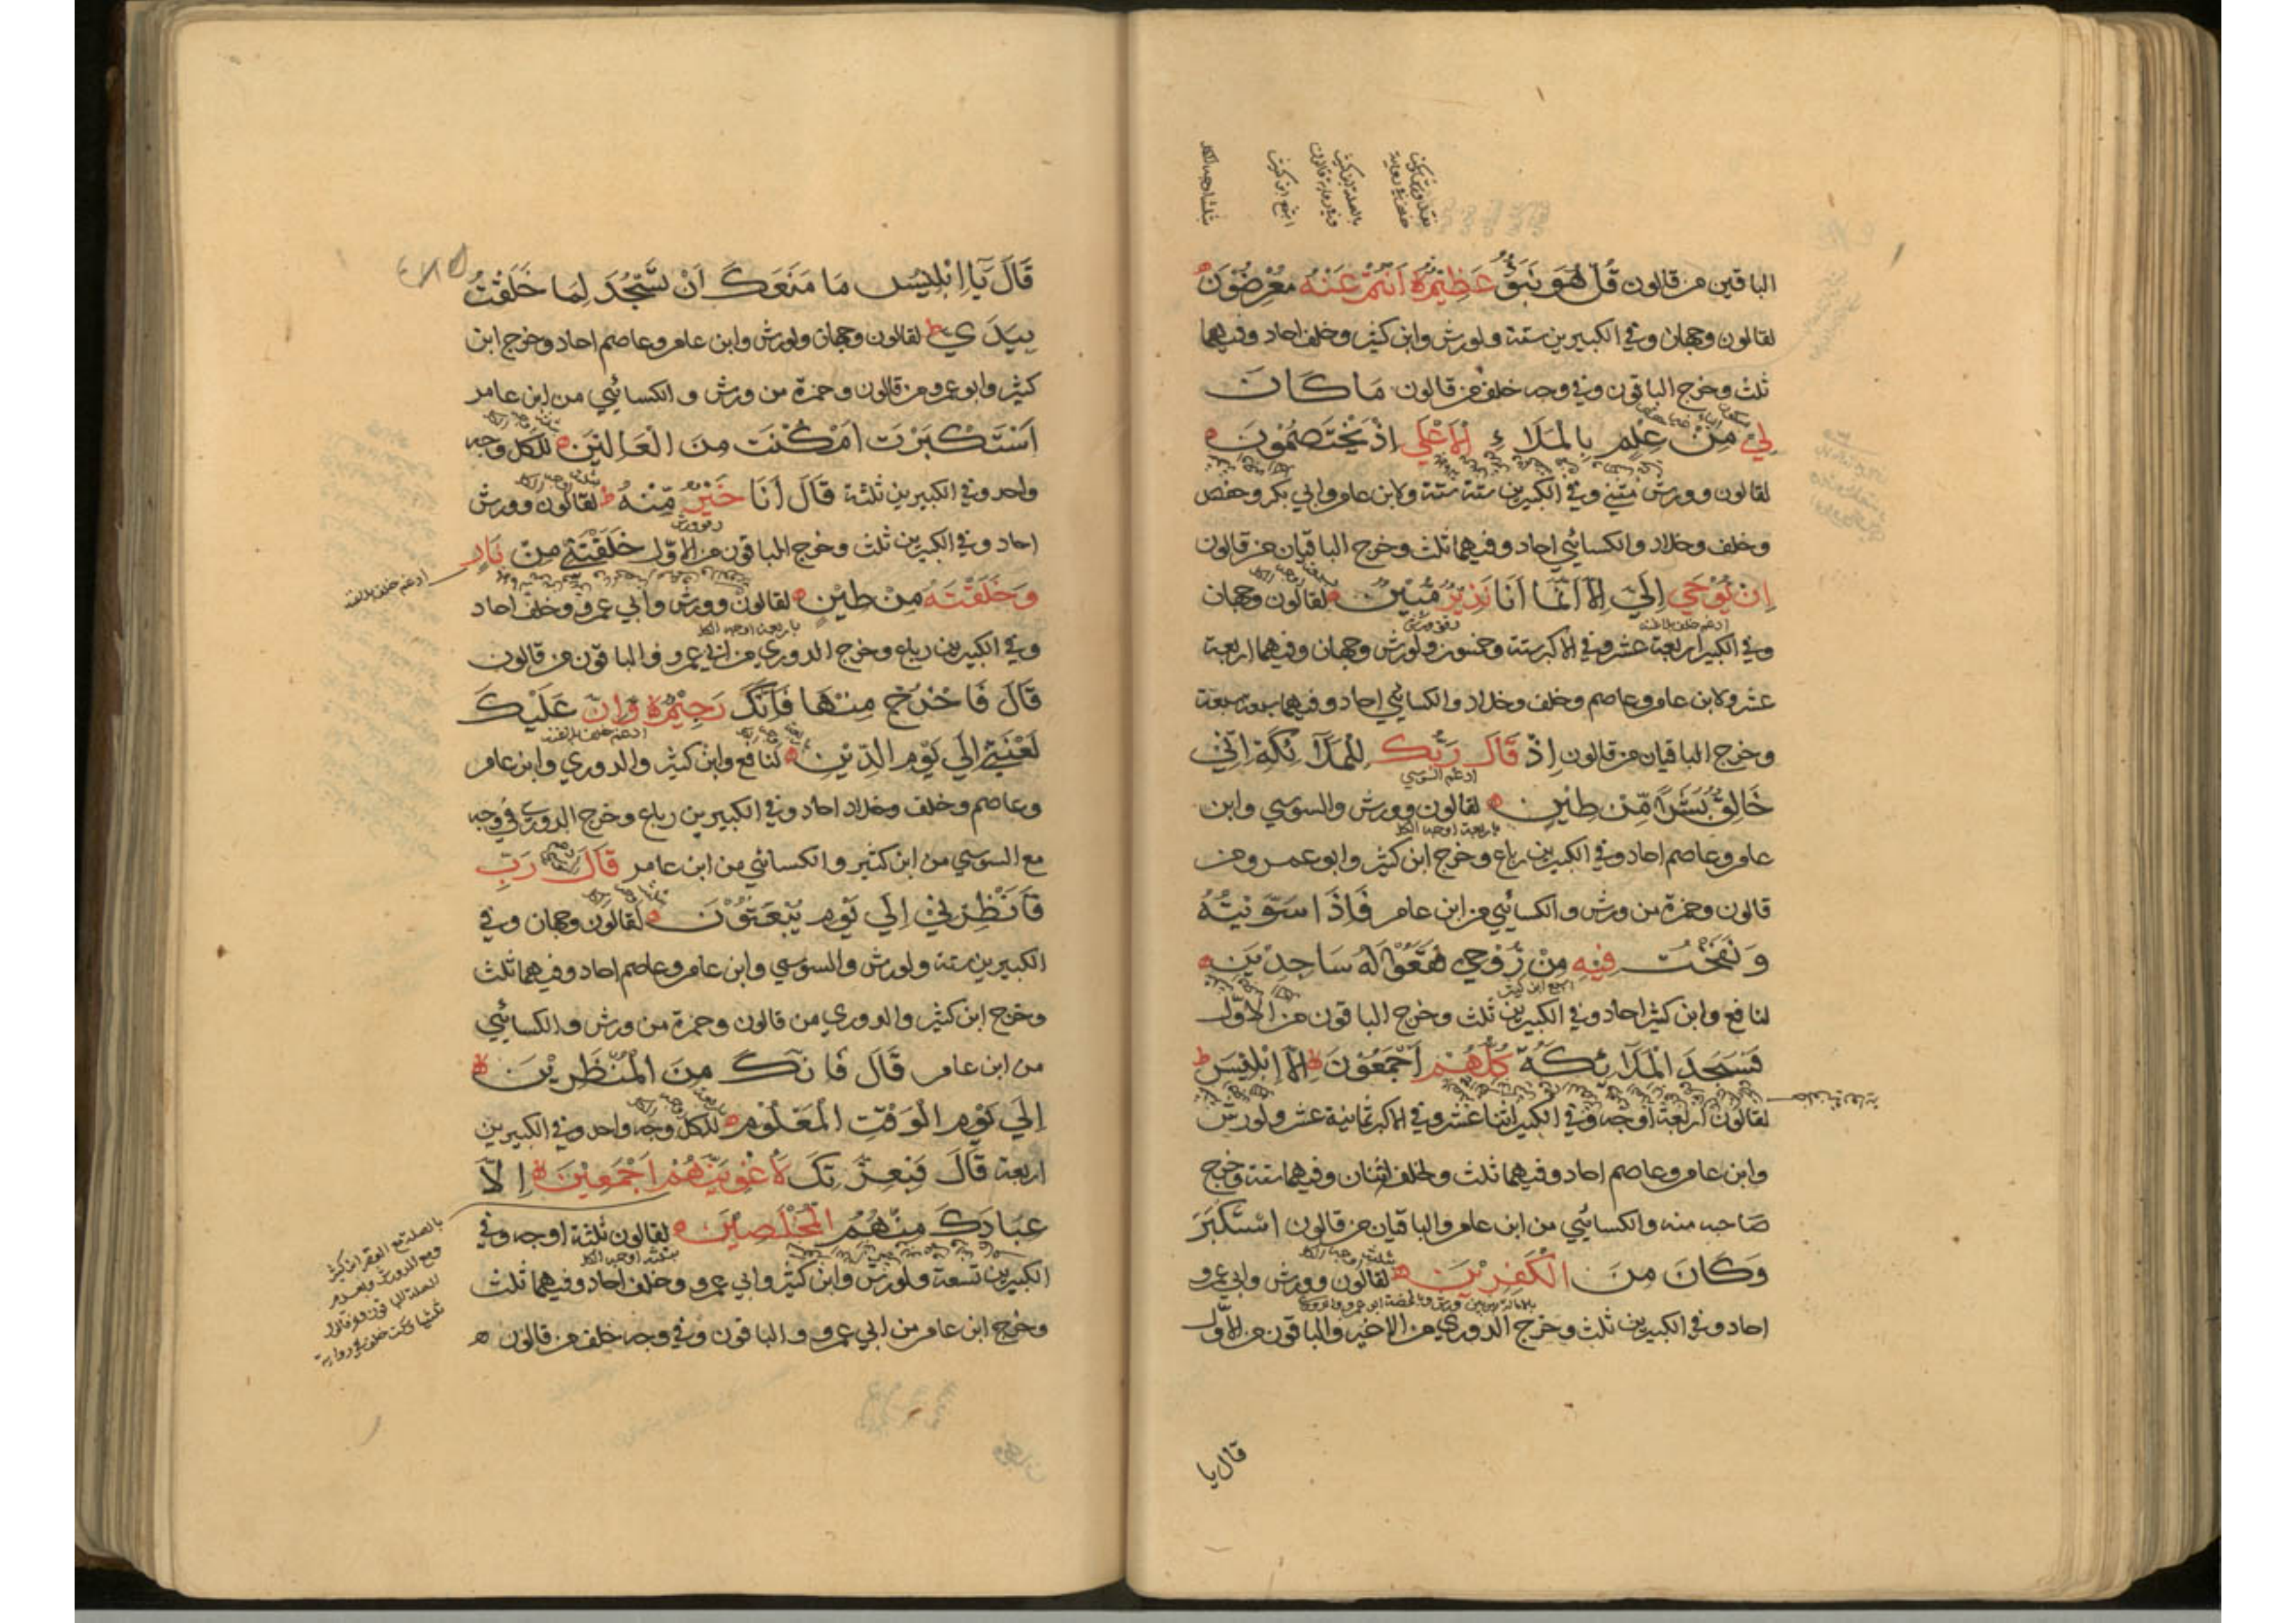 الباقين من قالون قُلْ هُوَ نَبَؤٌ عَظِيْمٌ اَنْتُمْ عَنْهُ مُعْرِضُوْنَ
لقالون وجهان وفي الكبيرين ستة ولورش وابن كثير وخلف احاد وفيهما
ثلث وخرج الباقون وفي وجه خلف من قالون مَا كَانَ
لِيَ مِنْ عِلْمٍ بِالْمَلَاءِ الْاَعْلٰي اِذْ يَخْتَصِمُوْنَ
لقالون وورش مثنى وفي الكبيرين ستة ستة ولابن عامر وابي بكر وحفص
وخلف وخلاد والكسائي احاد وفيهما ثلث وخرج الباقيان من قالون
اِنْ يُوْحٰي اِلَيَّ اِلَّا اَنَّمَا اَنَا نَذِيْرٌ مُّبِيْنٌ لقالون وجهان
وفي الكبير اربعة عشر وفي الاكبر ستة وخمسون ولورش وجهان وفيهما اربعة
عشر ولابن عامر وعاصم وخلف وخلاد والكسائي احاد وفيهما سبعة سبعة
وخرج الباقيان من قالون اِذْ قَالَ رَبُّكَ لِلْمَلَآئِكَةِ اِنِّيْ
خَالِقٌ بَشَرًا مِّنْ طِيْنٍ لقالون وورش والسوسي وابن
عامر وعاصم احاد وفي الكبيرين رباع وخرج ابن كثير وابو عمرو من
قالون وحمزة من ورش والكسائي من ابن عامر فَاِذَا سَوَّيْتُهُ
وَنَفَخْتُ فِيْهِ مِنْ رُّوْحِيْ فَقَعُوْا لَهُ سَاجِدِيْنَ
لنافع وابن كثير احاد وفي الكبيرين ثلث وخرج الباقون من الاوّل
فَسَجَدَ الْمَلَآئِكَةُ كُلُّهُمْ اَجْمَعُوْنَ اِلَّا اِبْلِيْسَ
لقالون اربعة اوجه وفي الكبير اثنا عشر وفي الاكبر ثمانية عشر ولورش
وابن عامر وعاصم احاد وفيهما ثلث ولخلف اثنان وفيهما ستة وخرج
صاحبه منه والكسائي من ابن عامر والباقيان من قالون اسْتَكْبَرَ
وَكَانَ مِنَ الْكٰفِرِيْنَ لقالون وورش وابي عمرو
احاد وفي الكبيرين ثلث وخرج الدوري من الاخير والباقون من الاوّل
قال يا
قَالَ يَآ اِبْلِيْسُ مَا مَنَعَكَ اَنْ تَسْجُدَ لِمَا خَلَقْتُ
بِيَدَيَّ لقالون وجهان ولورش وابن عامر وعاصم احاد وخرج ابن
كثير وابو عمرو من قالون وحمزة من ورش والكسائي من ابن عامر
اَسْتَكْبَرْتَ اَمْ كُنْتَ مِنَ الْعَالِيْنَ للكل وجه
واحد وفي الكبيرين ثلثة قَالَ اَنَا خَيْرٌ مِّنْهُ لقالون وورش
احاد وفي الكبيرين ثلث وخرج الباقون من الاوّل خَلَقْتَنِيْ مِنْ نَارٍ
ادغم خلف بلا غنة
وَخَلَقْتَهُ مِنْ طِيْنٍ لقالون وورش وابي عمرو وخلف احاد
وفي الكبيرين رباع وخرج الدوري من ابي عمرو والباقون من قالون
قَالَ فَاخْرُجْ مِنْهَا فَاِنَّكَ رَجِيْمٌ وَّاِنَّ عَلَيْكَ
لَعْنَتِيْ اِلٰي يَوْمِ الدِّيْنِ لنافع وابن كثير والدوري وابن عامر
وعاصم وخلف وخلاد احاد وفي الكبيرين رباع وخرج الدوري في وجه
مع السوسي من ابن كثير والكسائي من ابن عامر قَالَ رَبِّ
فَاَنْظِرْنِيْ اِلٰي يَوْمِ يُبْعَثُوْنَ لقالون وجهان وفي
الكبيرين ستة ولورش والسوسي وابن عامر وعاصم احاد وفيهما ثلث
وخرج ابن كثير والدوري من قالون وحمزة من ورش والكسائي
من ابن عامر قَالَ فَاِنَّكَ مِنَ الْمُنْظَرِيْنَ
اِلٰي يَوْمِ الْوَقْتِ الْمَعْلُوْمِ للكل وجه واحد وفي الكبيرين
اربعة قَالَ فَبِعِزَّتِكَ لَاُغْوِيَنَّهُمْ اَجْمَعِيْنَ اِلَّا
عِبَادَكَ مِنْهُمُ الْمُخْلَصِيْنَ لقالون ثلثة اوجه وفي
الكبيرين تسعة ولورش وابن كثير وابي عمرو وخلف احاد وفيهما ثلث
وخرج ابن عامر من ابي عمرو والباقون وفي وجه خلف من قالون